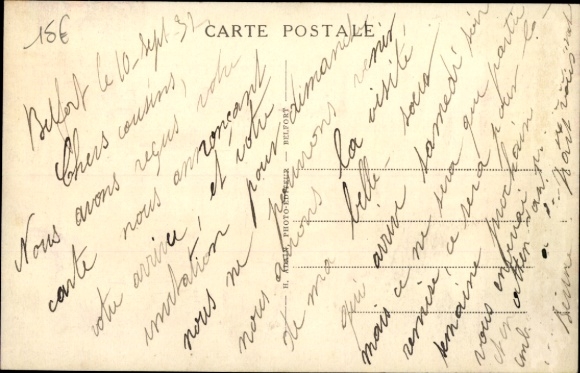 15€
CARTE POSTALE
Belfort le 10-Sept-32
Chers cousins,
Nous avons reçus votre
carte nous annonçant
votre arrivée, et votre
invitation pour dimanche
nous ne pourrons venir
nous avions la visite
de ma belle - soeur
qui arrive samedi soir
mais ce ne sera que partie
remise, ce sera pour la
semaine prochaine
vous
H. ADAM, PHOTO-EDITEUR — BELFORT